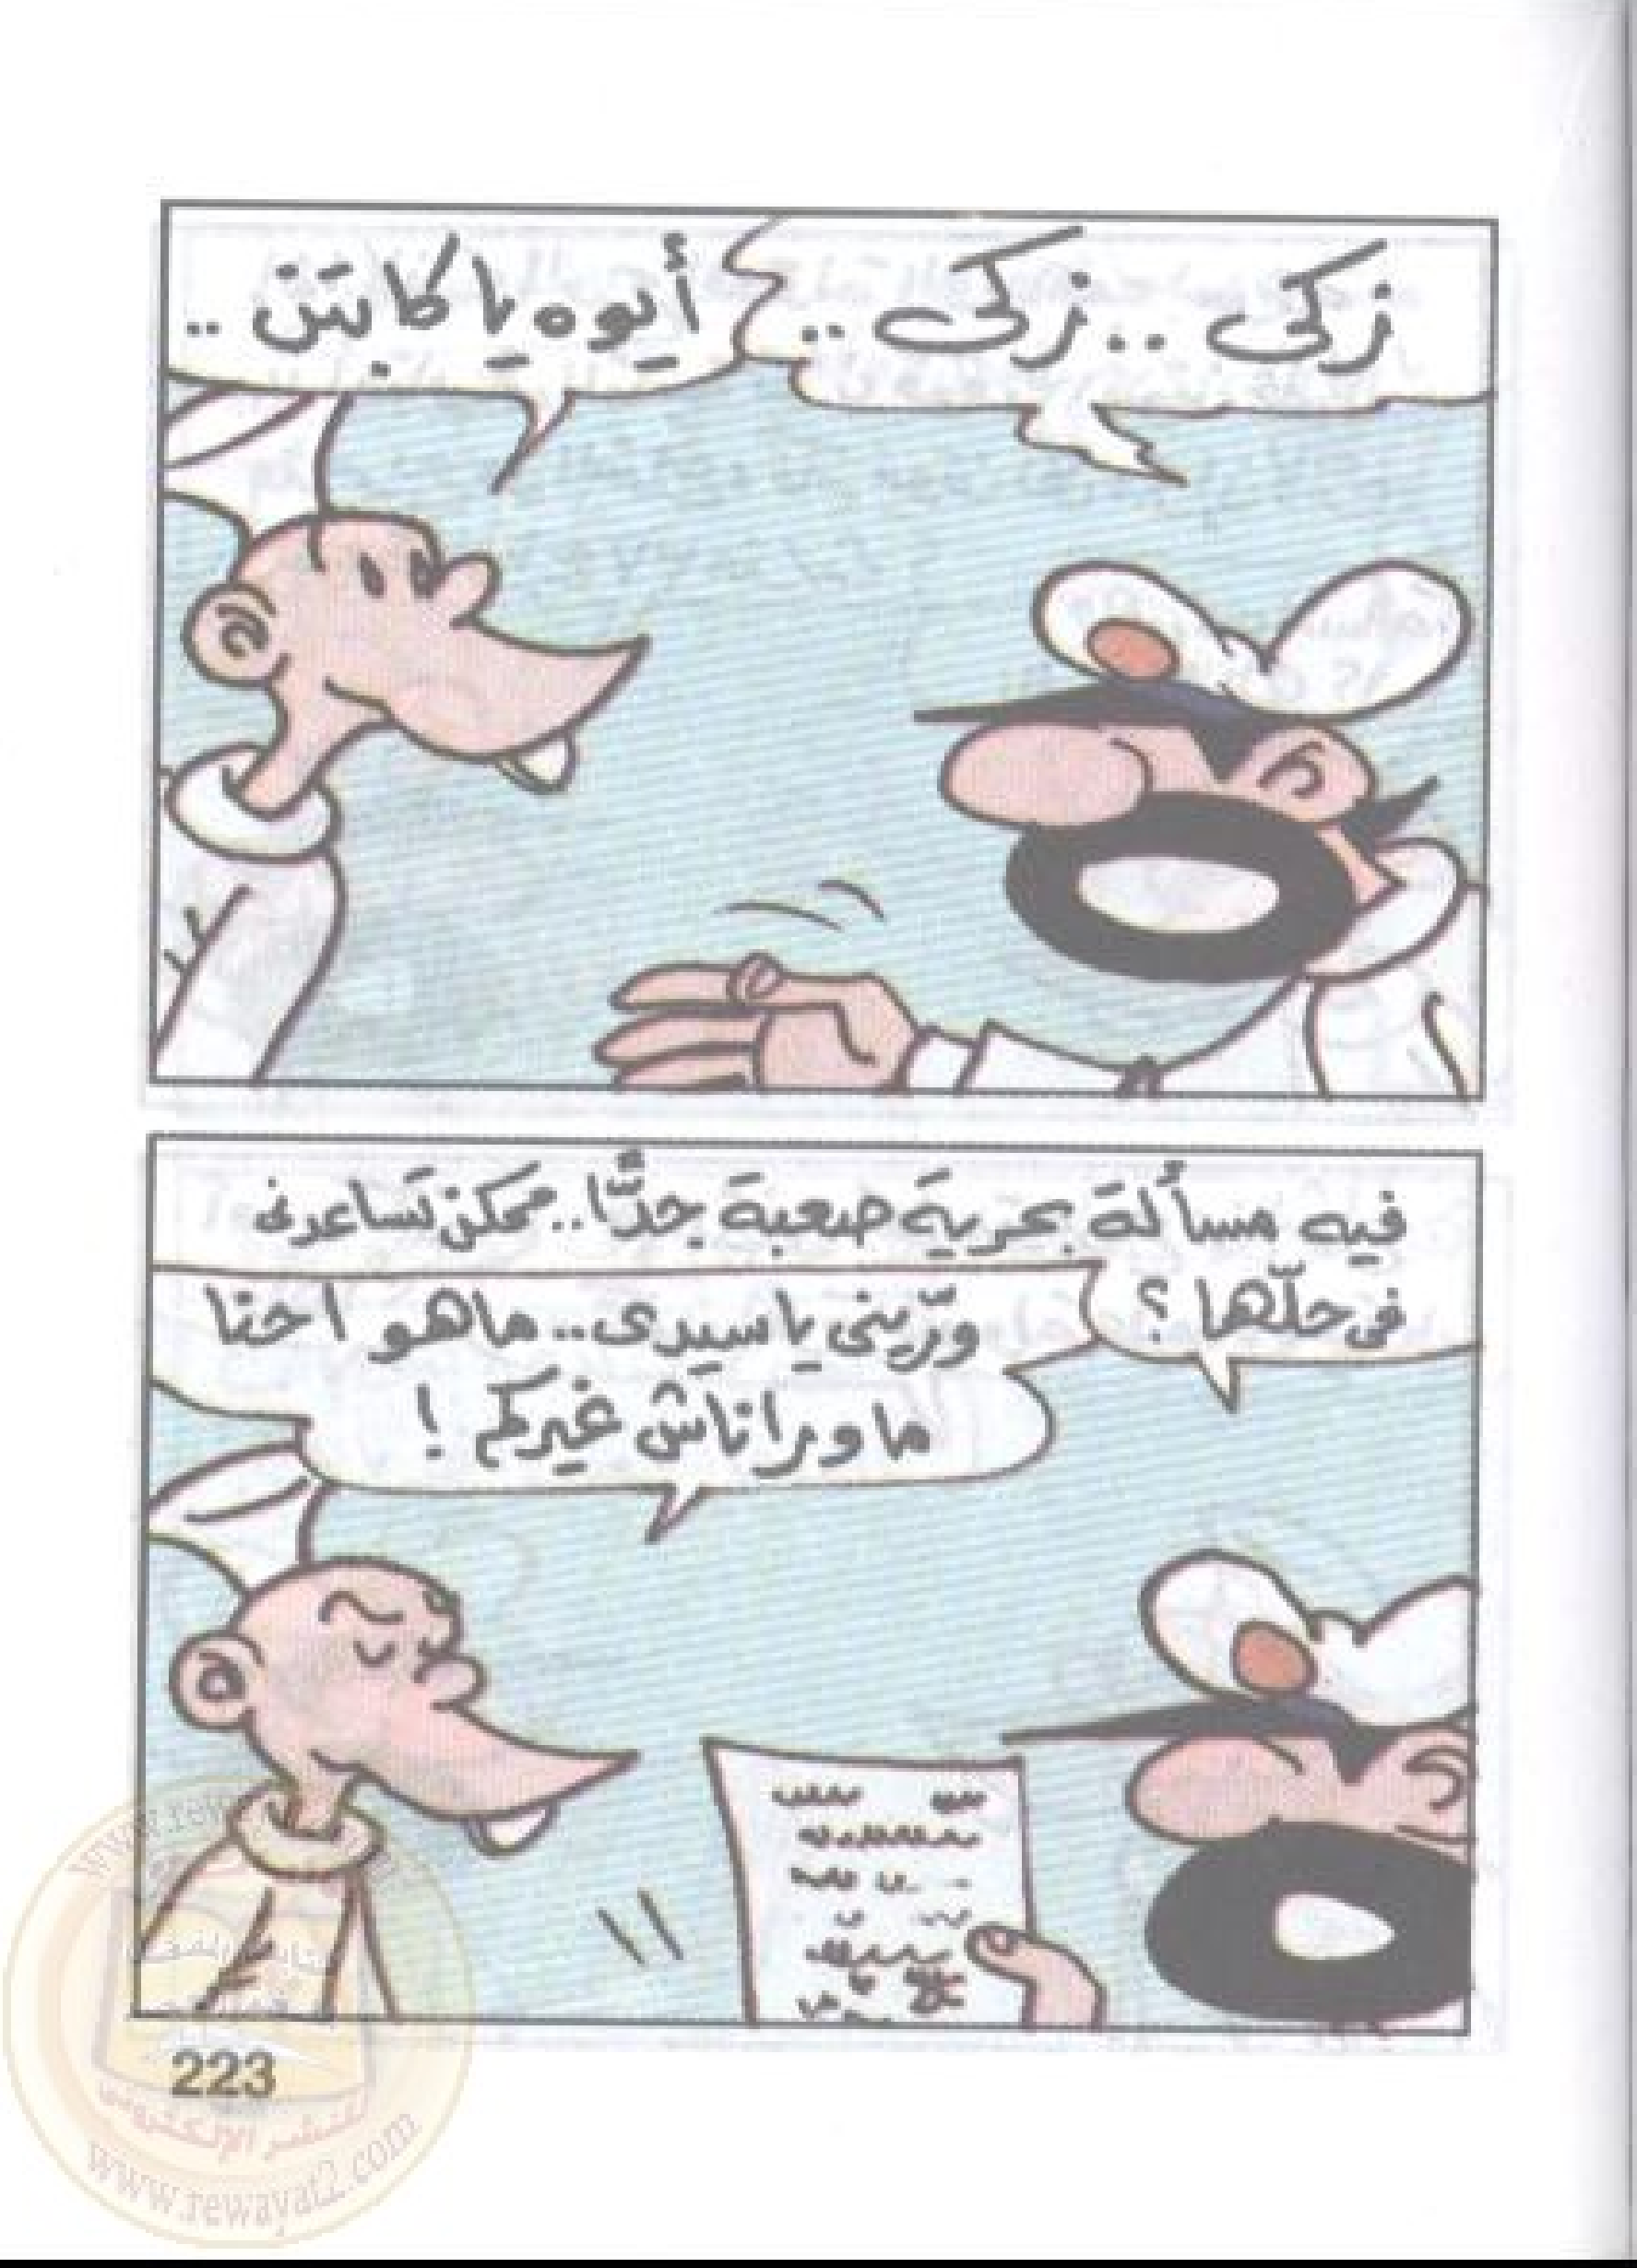 زكى .. زكى ..
أيوه يا كابتن ..
فيه مسألة بحرية صعبة جدًّا.. ممكن تساعدنى
فى حلّها ؟
ورّينى يا سيدى.. ما هو احنا
ما وراناش غيركم !
223
النشر الإلكترونى
www.rewayat2.com